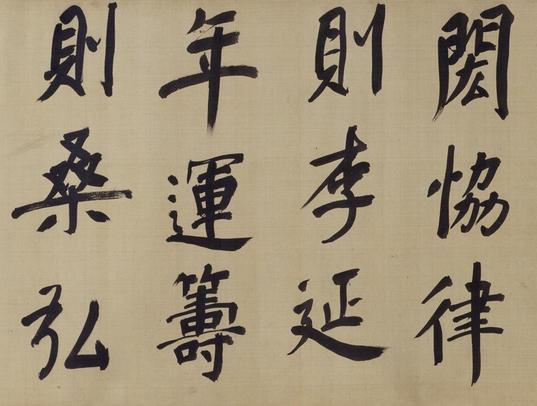 閎協律
則李延
年運籌
則桑弘